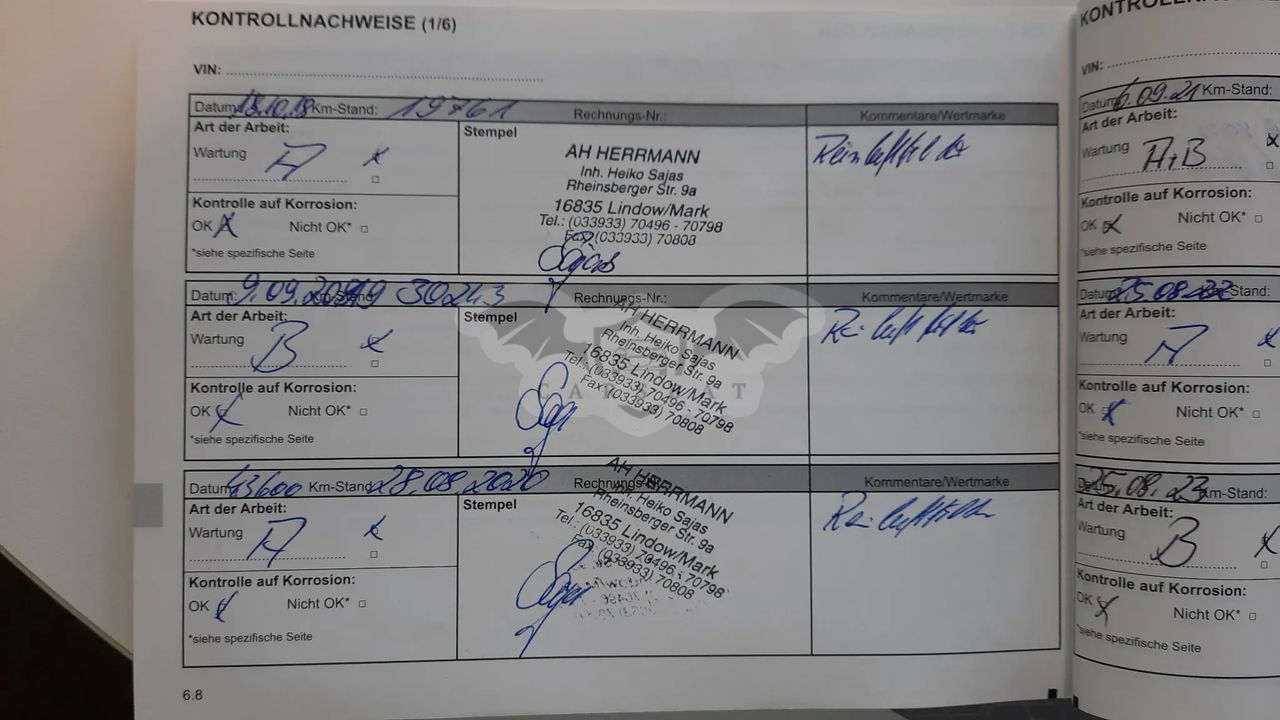 KONTROLLNACHWEISE (1/6)
VIN:
Datum: 18.10.18 Km-Stand: 19761 Rechnungs-Nr.: Kommentare/Wertmarke
Art der Arbeit:
Stempel
Wartung A x
AH HERRMANN
Inh. Heiko Sajas
Rheinsberger Str. 9a
16835 Lindow/Mark
Tel.: (033933) 70496 - 70798
Fax: (033933) 70808
Kontrolle auf Korrosion:
OK x Nicht OK*
*siehe spezifische Seite
Datum: 9.09.2019 Km-Stand 30243 Rechnungs-Nr.: Kommentare/Wertmarke
Art der Arbeit:
Stempel
Wartung B x
AH HERRMANN
Inh. Heiko Sajas
Rheinsberger Str. 9a
16835 Lindow/Mark
Tel.: (033933) 70496 - 70798
Fax: (033933) 70808
Kontrolle auf Korrosion:
OK x Nicht OK*
*siehe spezifische Seite
Datum 43600 Km-Stand 28.08.2020 Rechnungs-Nr. Kommentare/Wertmarke
Art der Arbeit:
Stempel
Wartung A x
AH HERRMANN
Inh. Heiko Sajas
Rheinsberger Str. 9a
16835 Lindow/Mark
Tel.: (033933) 70496 - 70798
Fax: (033933) 70808
Kontrolle auf Korrosion:
OK x Nicht OK*
*siehe spezifische Seite
6.8
VIN:
Datum 6.09.21 Km-Stand:
Art der Arbeit:
Wartung A+B x
Kontrolle auf Korrosion:
OK x Nicht OK*
*siehe spezifische Seite
Datum 25.08.22 Stand:
Art der Arbeit:
Wartung A x
Kontrolle auf Korrosion:
OK x Nicht OK*
*siehe spezifische Seite
25.08.23 Km-Stand:
Art der Arbeit:
Wartung B x
Kontrolle auf Korrosion:
OK x Nicht OK*
*siehe spezifische Seite